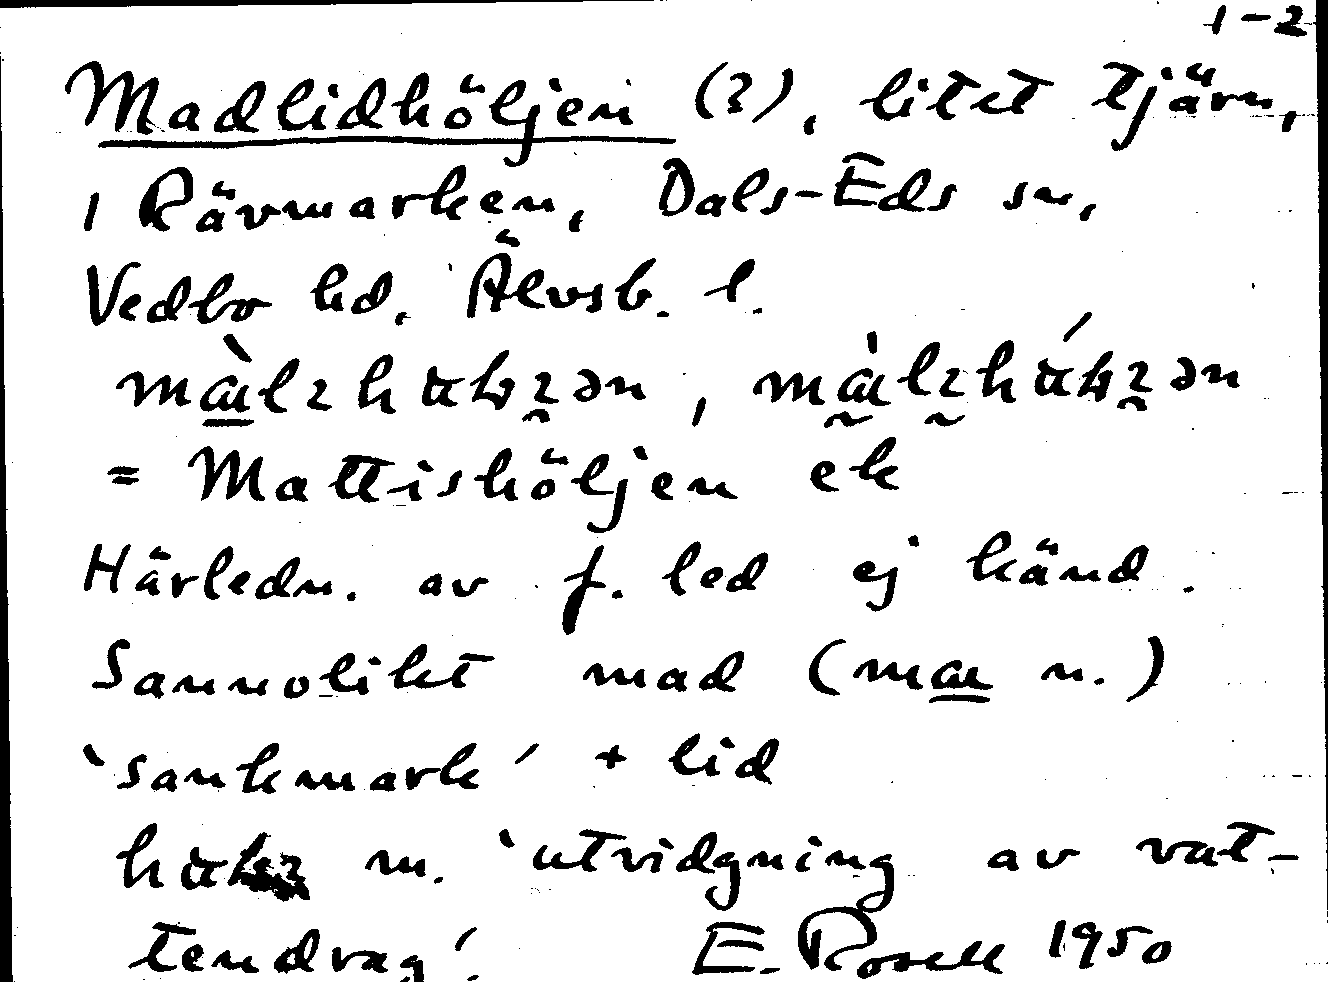 1-2
Madlidhöljen (?), litet tjärn,
i Rävmarken, Dals-Eds sn,
Vedbo hd, Älvsb. l.
= Mattishöljen ek
Härledn. av f. led ej känd.
Sannolikt mad (mɑ n.)
'sankmark' + lid
m. 'utvidgning av vat-
tendrag'. E. Rosell 1950